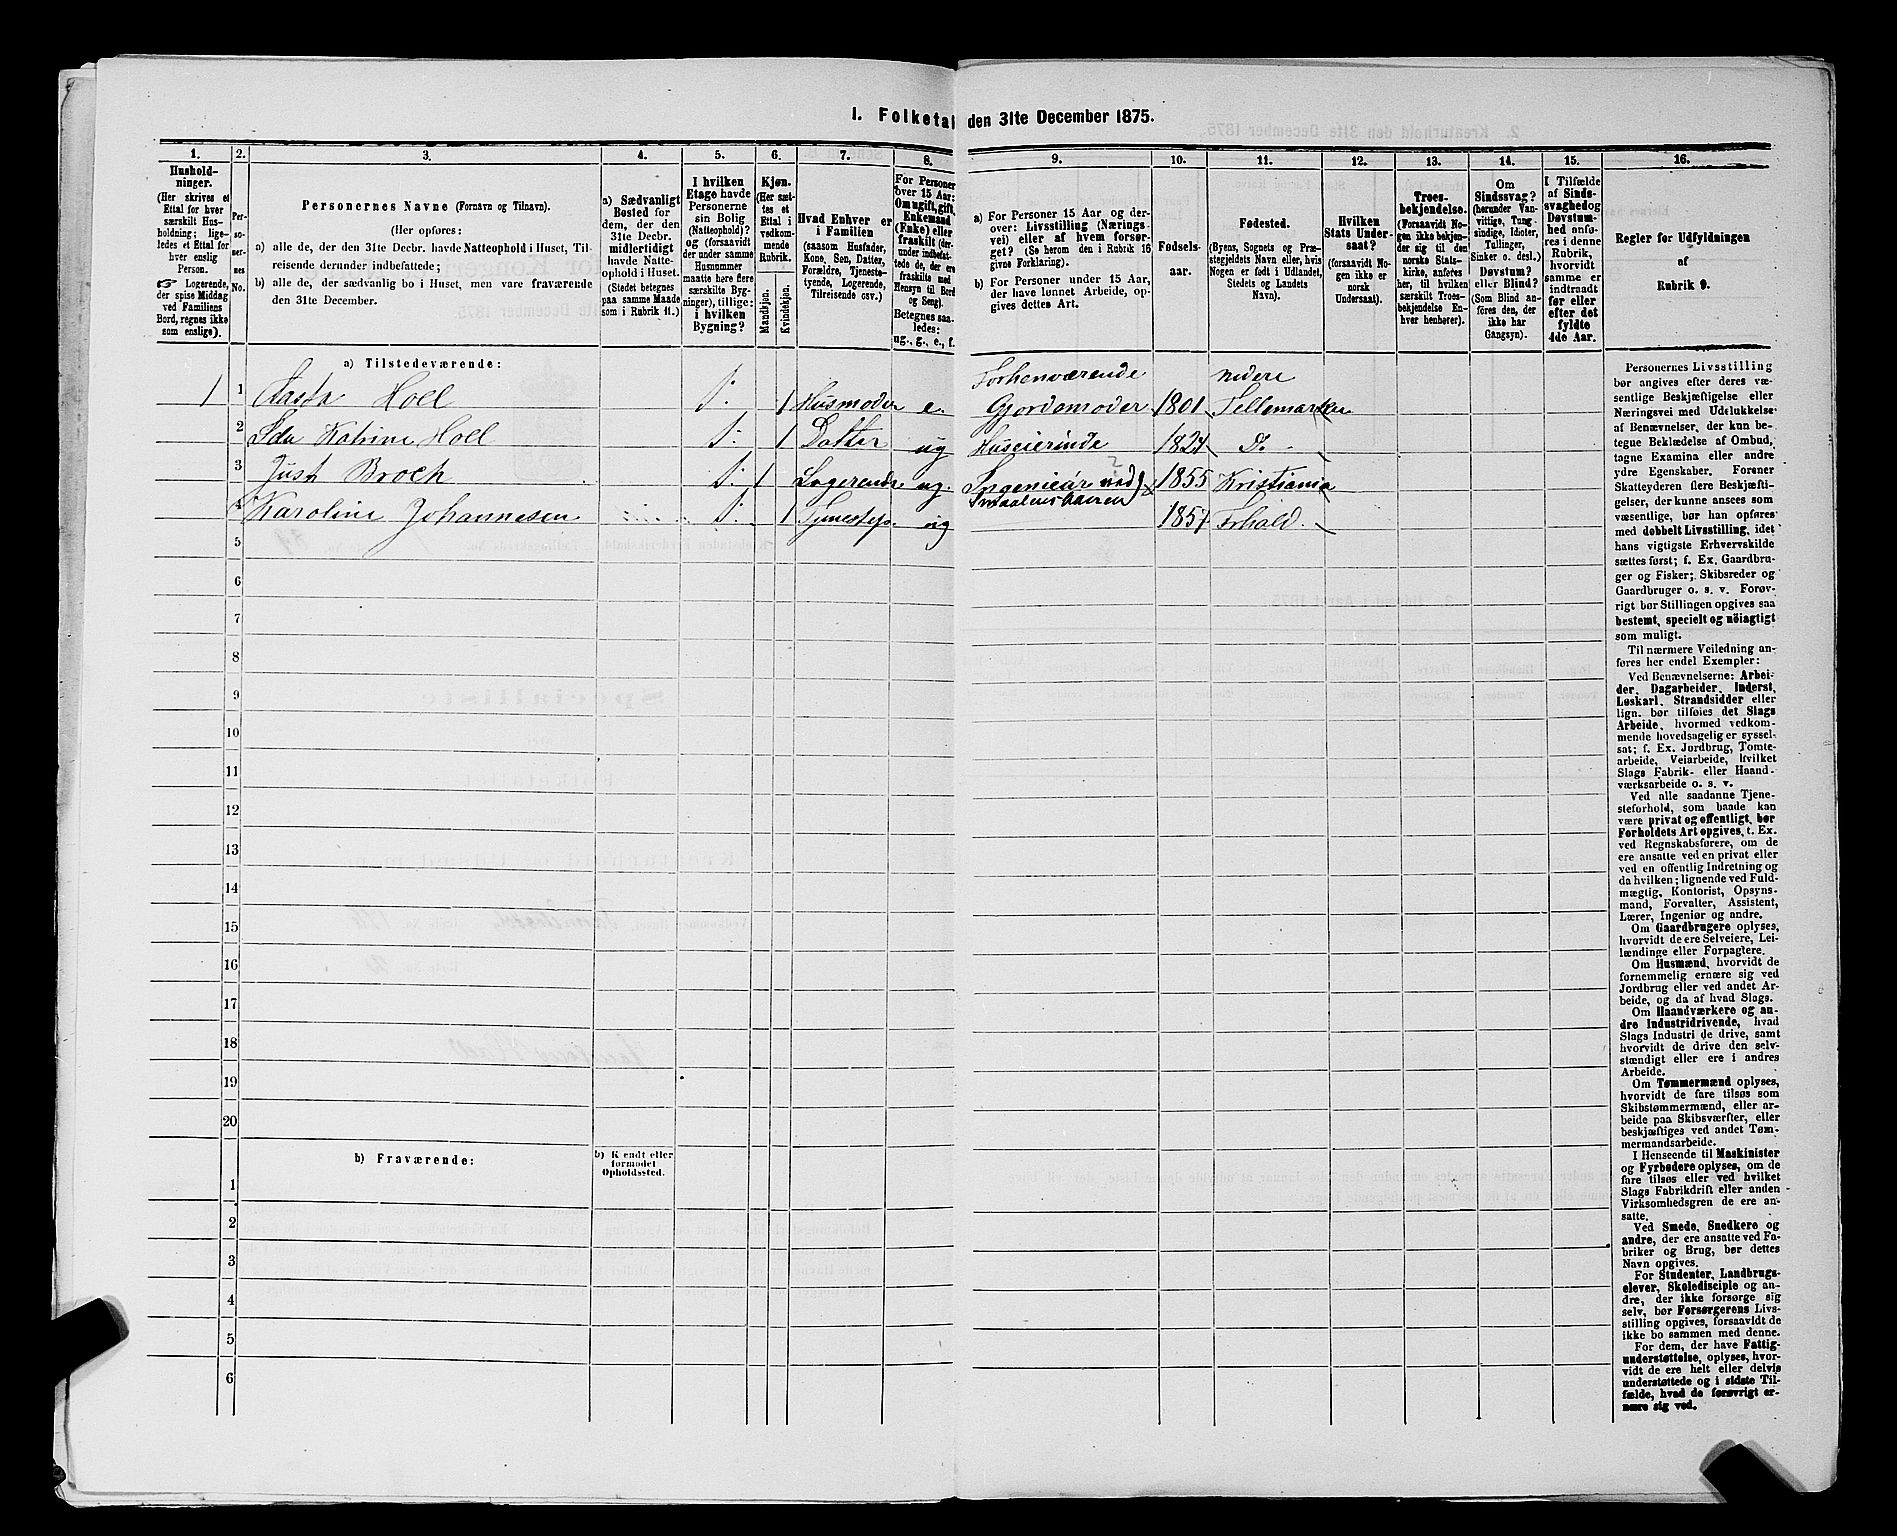 I. Folketal den 31te December 1875.
1. 2. 3. 4. 5. 6. 7. 8. 9. 10. 11. 12. 13. 14. 15. 16.
Husholdninger.
(Her skrives et
Ettal for hver
særskilt Husholdning;
ligeledes et Ettal for
hver enslig
Person.
☞ Logerende,
der spise Middag
ved Familiens
Bord, regnes ikke
som enslige).
Personernes No.
Personernes Navne (Fornavn og Tilnavn).
(Her opføres:
a) alle de, der den 31te Decbr. havde Natteophold i Huset, Tilreisende derunder indbefattede;
b) alle de, der sædvanlig bo i Huset, men vare fraværende
den 31te December.
a) Sædvanligt
Bosted for
dem, der den
31te Decbr.
midlertidigt
havde Natteophold i Huset.
(Stedet betegnes
paa samme Maade
som i Rubrik 11.)
I hvilken
Etage havde
Personerne
sin Bolig
(Natteophold)?
og (forsaavidt
der under samme
Husnummer
maatte høre flere
særskilte Bygninger), tillige:
i hvilken
Bygning?
Kjøn.
(Her sættes et
Ettal i
vedkommende
Rubrik.
Mandkjøn.
Kvindekjøn.
Hvad Enhver er
i Familien
(saasom Husfader,
Kone, Søn, Datter,
Forældre, Tjenestetyende, Logerende,
Tilreisende osv.)
For Personer
over 15 Aar:
Om ugift, gift,
Enkemand
(Enke) eller
fraskilt (derunder indbefattede de, der ere
fraskilte med
Hensyn til Bord
og Seng).
Betegnes saaledes:
ug., g., e., f.
a) For Personer 15 Aar og derover: Livsstilling (Næringsvei) eller af hvem forsørget? (Se herom den i Rubrik 16
givne Forklaring).
b) For Personer under 15 Aar,
der have lønnet Arbeide, opgives dettes Art.
Fødselsaar.
Fødested.
(Byens, Sognets og Præstegjeldets Navn eller, hvis
Nogen er født i Udlandet,
Stedets og Landets
Navn).
Hvilken
Stats Undersaat?
(forsaavidt Nogen ikke er
norsk
Undersaat).
Troesbekjendelse.
(Forsaavidt Nogen ikke bekjender sig til den
norske Statskirke, anføres
her, til hvilken
særskilt Troesbekjendelse Enhver henhører).
Om
Sindssvag?
(herunder Vanvittige, Tungsindige, Idioter,
Tullinger,
Sinker o. desl.)
Døvstum?
eller Blind?
(Som Blind anføres den, der
ikke har
Gangsyn).
I Tilfælde
af Sindssvaghed og
Døvstumhed anføres i denne
Rubrik,
hvorvidt
samme er
indtraadt
før eller
efter det
fyldte
4de Aar.
Regler for Udfyldningen
af
Rubrik 9.
a) Tilstedeværende:
1 1 Aasta Holl 1. 1 Husmoder e. Forhenværende Gjordemoder 1801 nedre Tellemarken
2 Ida Katrine Holl 1. 1 Datter ug Huseierinde 1824 Do
3 Just Broch 1. 1 Logerende ug. Ingeniør ved Smaalensbanen 1855 Kristiania
4 Karoline Johannesen 1. 1 Tjenestep. ug 1857 Frhald.
5
6
7
8
9
10
11
12
13
14
15
16
17
18
19
20
b) Fraværende:
b) Kjendt eller
formodet
Opholdssted.
1
2
3
4
5
6
Personernes Livsstilling
bør angives efter deres væsentlige Beskjæftigelse eller
Næringsvei med Udelukkelse
af Benævnelser, der kun betegne Beklædelse af Ombud,
tagne Examina eller andre
ydre Egenskaber. Forener
Skatteyderen flere Beskjæftigelser, der kunne ansees som
væsentlige, bør han opføres
med dobbelt Livsstilling, idet
hans vigtigste Erhvervskilde
sættes først; f. Ex. Gaardbruger og Fisker; Skibsreder og
Gaardbruger o. s. v. Forøvrigt bør Stillingen opgives saa
bestemt, specielt og nöiagtigt
som muligt.
Til nærmere Veiledning anføres her endel Exempler:
Ved Benævnelserne: Arbeider, Dagarbeider, Inderst,
Løskarl, Strandsidder eller
lign. bør tilføies det Slags
Arbeide, hvormed vedkommende hovedsagelig er sysselsat; f. Ex. Jordbrug, Tomtearbeide, Veiarbeide, hvilket
Slags Fabrik- eller Haandværksarbeide o. s. v.
Ved alle saadanne Tjenesteforhold, som baade kan
være privat og offentligt, bør
Forholdets Art opgives, t. Ex.
ved Regnskabsførere, om de
ere ansatte ved en privat eller
ved en offentlig Indretning og
da hvilken; lignende ved Fuldmægtig, Kontorist, Opsynsmand, Forvalter, Assistent,
Lærer, Ingeniør og andre.
Om Gaardbrugere oplyses,
hvorvidt de ere Selveiere, Leilændinge eller Forpagtere.
Om Husmænd, hvorvidt de
fornemmelig ernære sig ved
Jordbrug eller ved andet Arbeide, og da af hvad Slags.
Om Haandværkere og andre Industridrivende, hvad
Slags Industri de drive, samt
hvorvidt de drive den selvstændigt eller ere i andres
Arbeide.
Om Tømmermænd oplyses,
hvorvidt de fare tilsøs som
Skibstømmermænd, eller arbeide paa Skibsværfter, eller
beskjæftiges ved andet Tømmermandsarbeide.
I Henseende til Maskinister
og Fyrbødere oplyses, om de
fare tilsøs eller ved hvilket
Slags Fabrikdrift eller anden
Virksomhedsgren de ere ansatte.
Ved Smede, Snedkere og
andre, der ere ansatte ved Fabriker og Brug, bør dettes
Navn opgives.
For Studenter, Landbrugselever, Skoledisciple og andre, der ikke forsørge sig
selv, bør Forsørgerens Livsstilling opgives, forsaavidt de
ikke bo sammen med denne.
For dem, der have Fattigunderstøttelse, oplyses, hvorvidt de ere helt eller delvis
understøttede og i sidste Tilfælde, hvad de forøvrigt ernære sig ved.